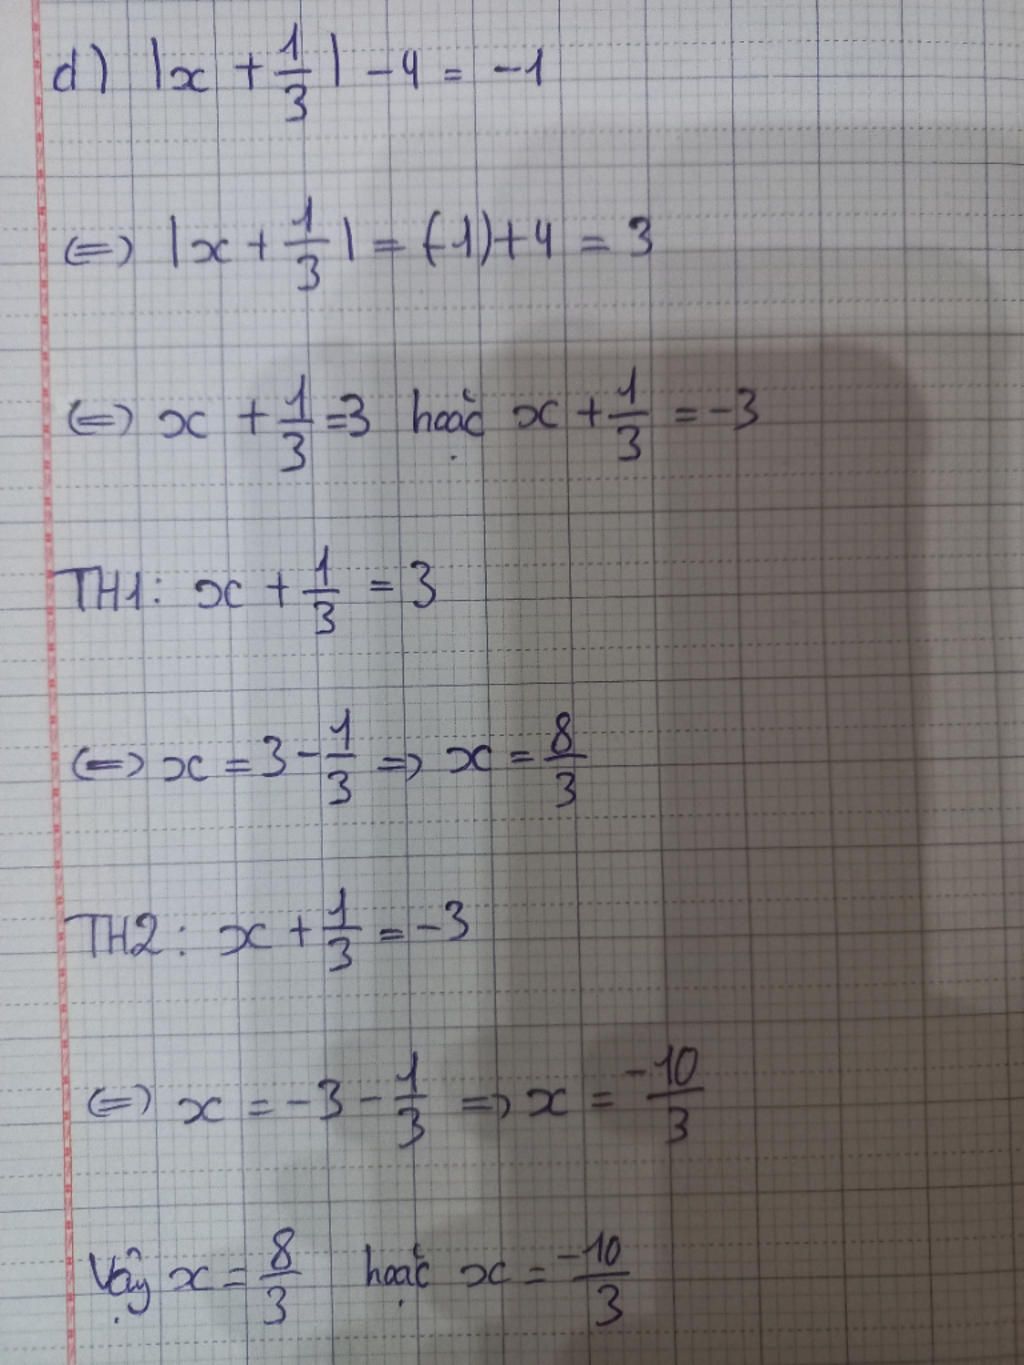 d) |x + 1/3| - 4 = -1
(=) |x + 1/3| = (-1) + 4 = 3
(=) x + 1/3 = 3 hoặc x + 1/3 = -3
TH1: x + 1/3 = 3
(=) x = 3 - 1/3 => x = 8/3
TH2: x + 1/3 = -3
(=) x = -3 - 1/3 => x = -10/3
Vậy x = 8/3 hoặc x = -10/3